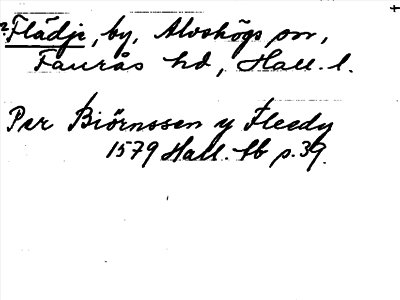 Flädje, by, Alvshögs sn,
Faurås hd, Hall. l.
Per Biörnssen y Fleedy
1579 Hall. tb p. 39.